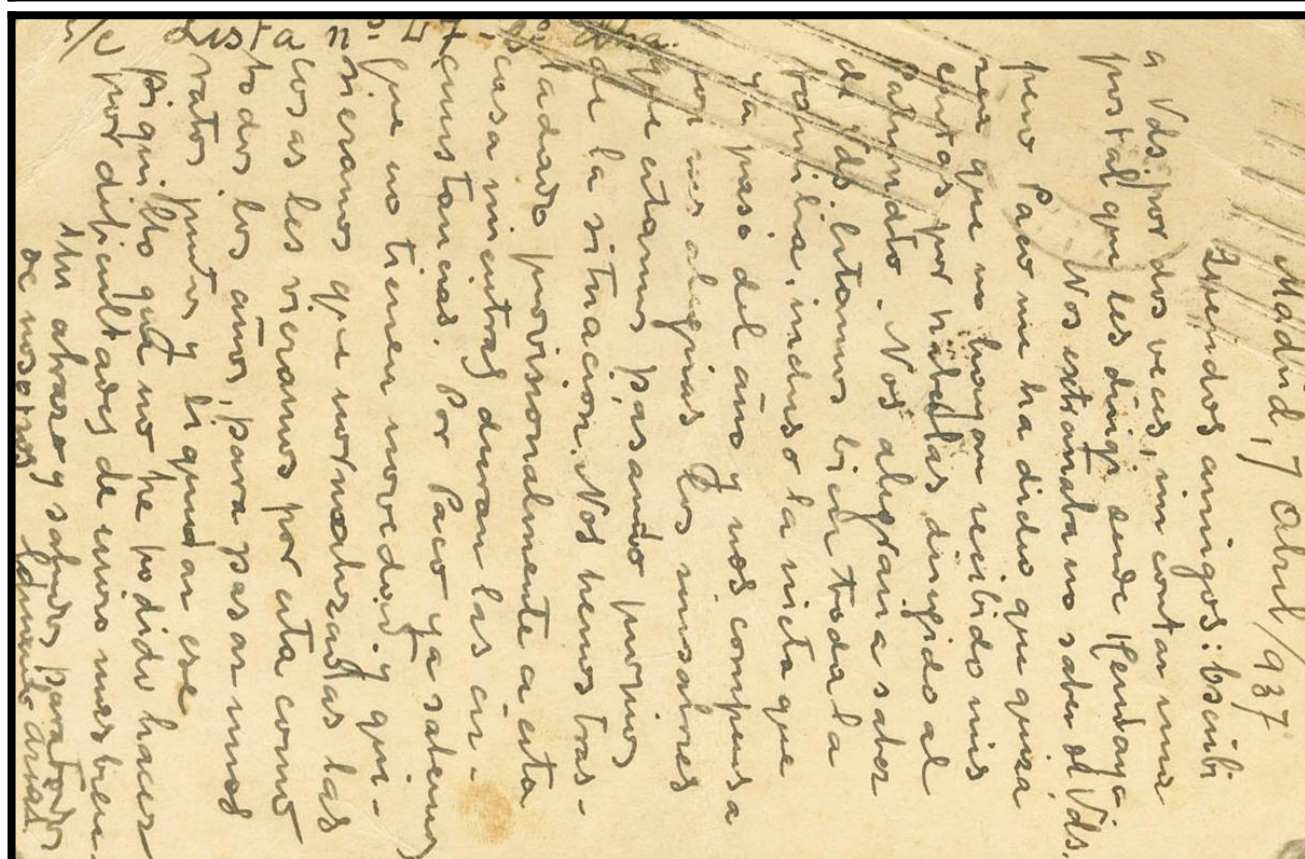 Madrid, 7 Abril/937
Queridos amigos: Escribi
a Vds. por dos veces, sin contar una
postal que les dirigi desde Hendaya
Nos extrañaba no saber de Vds.
pero Paco me ha dicho que quiza
sea que no hayan recibido mis
cartas por haberlas dirigido al
Patronato. Nos alegraria saber
de Vds. Estamos bien toda la
familia, incluso la nieta que
ya pasa del año y nos compensa
con sus alegrias los sinsabores
que estamos pasando
de la situacion. Nos hemos tras-
ladado provisonalmente a esta
casa mientras duran las cir-
cunstancias. Por Paco ya sabemos
que no tienen novedad y qui-
sieramos que normalizadas las
cosas les vieramos por esta como
todos los años, para pasar unos
ratos juntos y liquidar ese
piquillo que no he podido hacer
por dificultades de envio mas bien.
Un abrazo y saludos para todos
de nosotros Eduardo
s/c Lista nº 47 - 3º dcha.